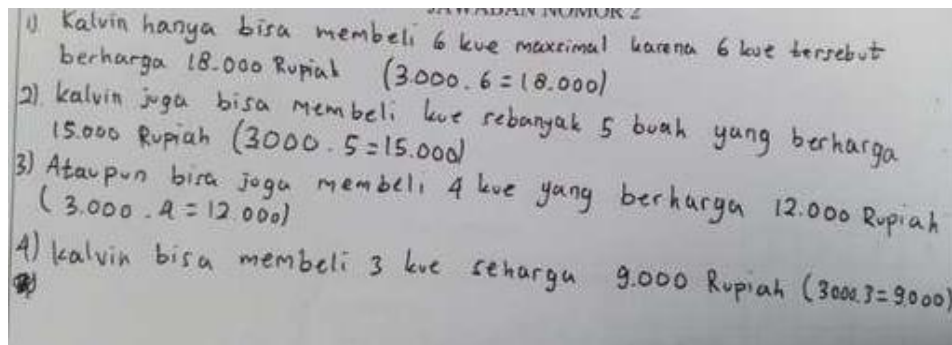 JAWABAN NOMOR 2
1) Kalvin hanya bisa membeli 6 kue maxsimal karena 6 kue tersebut
berharga 18.000 Rupiah (3.000 . 6 = 18.000)
2) kalvin juga bisa membeli kue sebanyak 5 buah yang berharga
15.000 Rupiah (3000 . 5 = 15.000)
3) Ataupun bisa juga membeli 4 kue yang berharga 12.000 Rupiah
(3.000 . 4 = 12.000)
4) kalvin bisa membeli 3 kue seharga 9.000 Rupiah (3000.3=9.000)